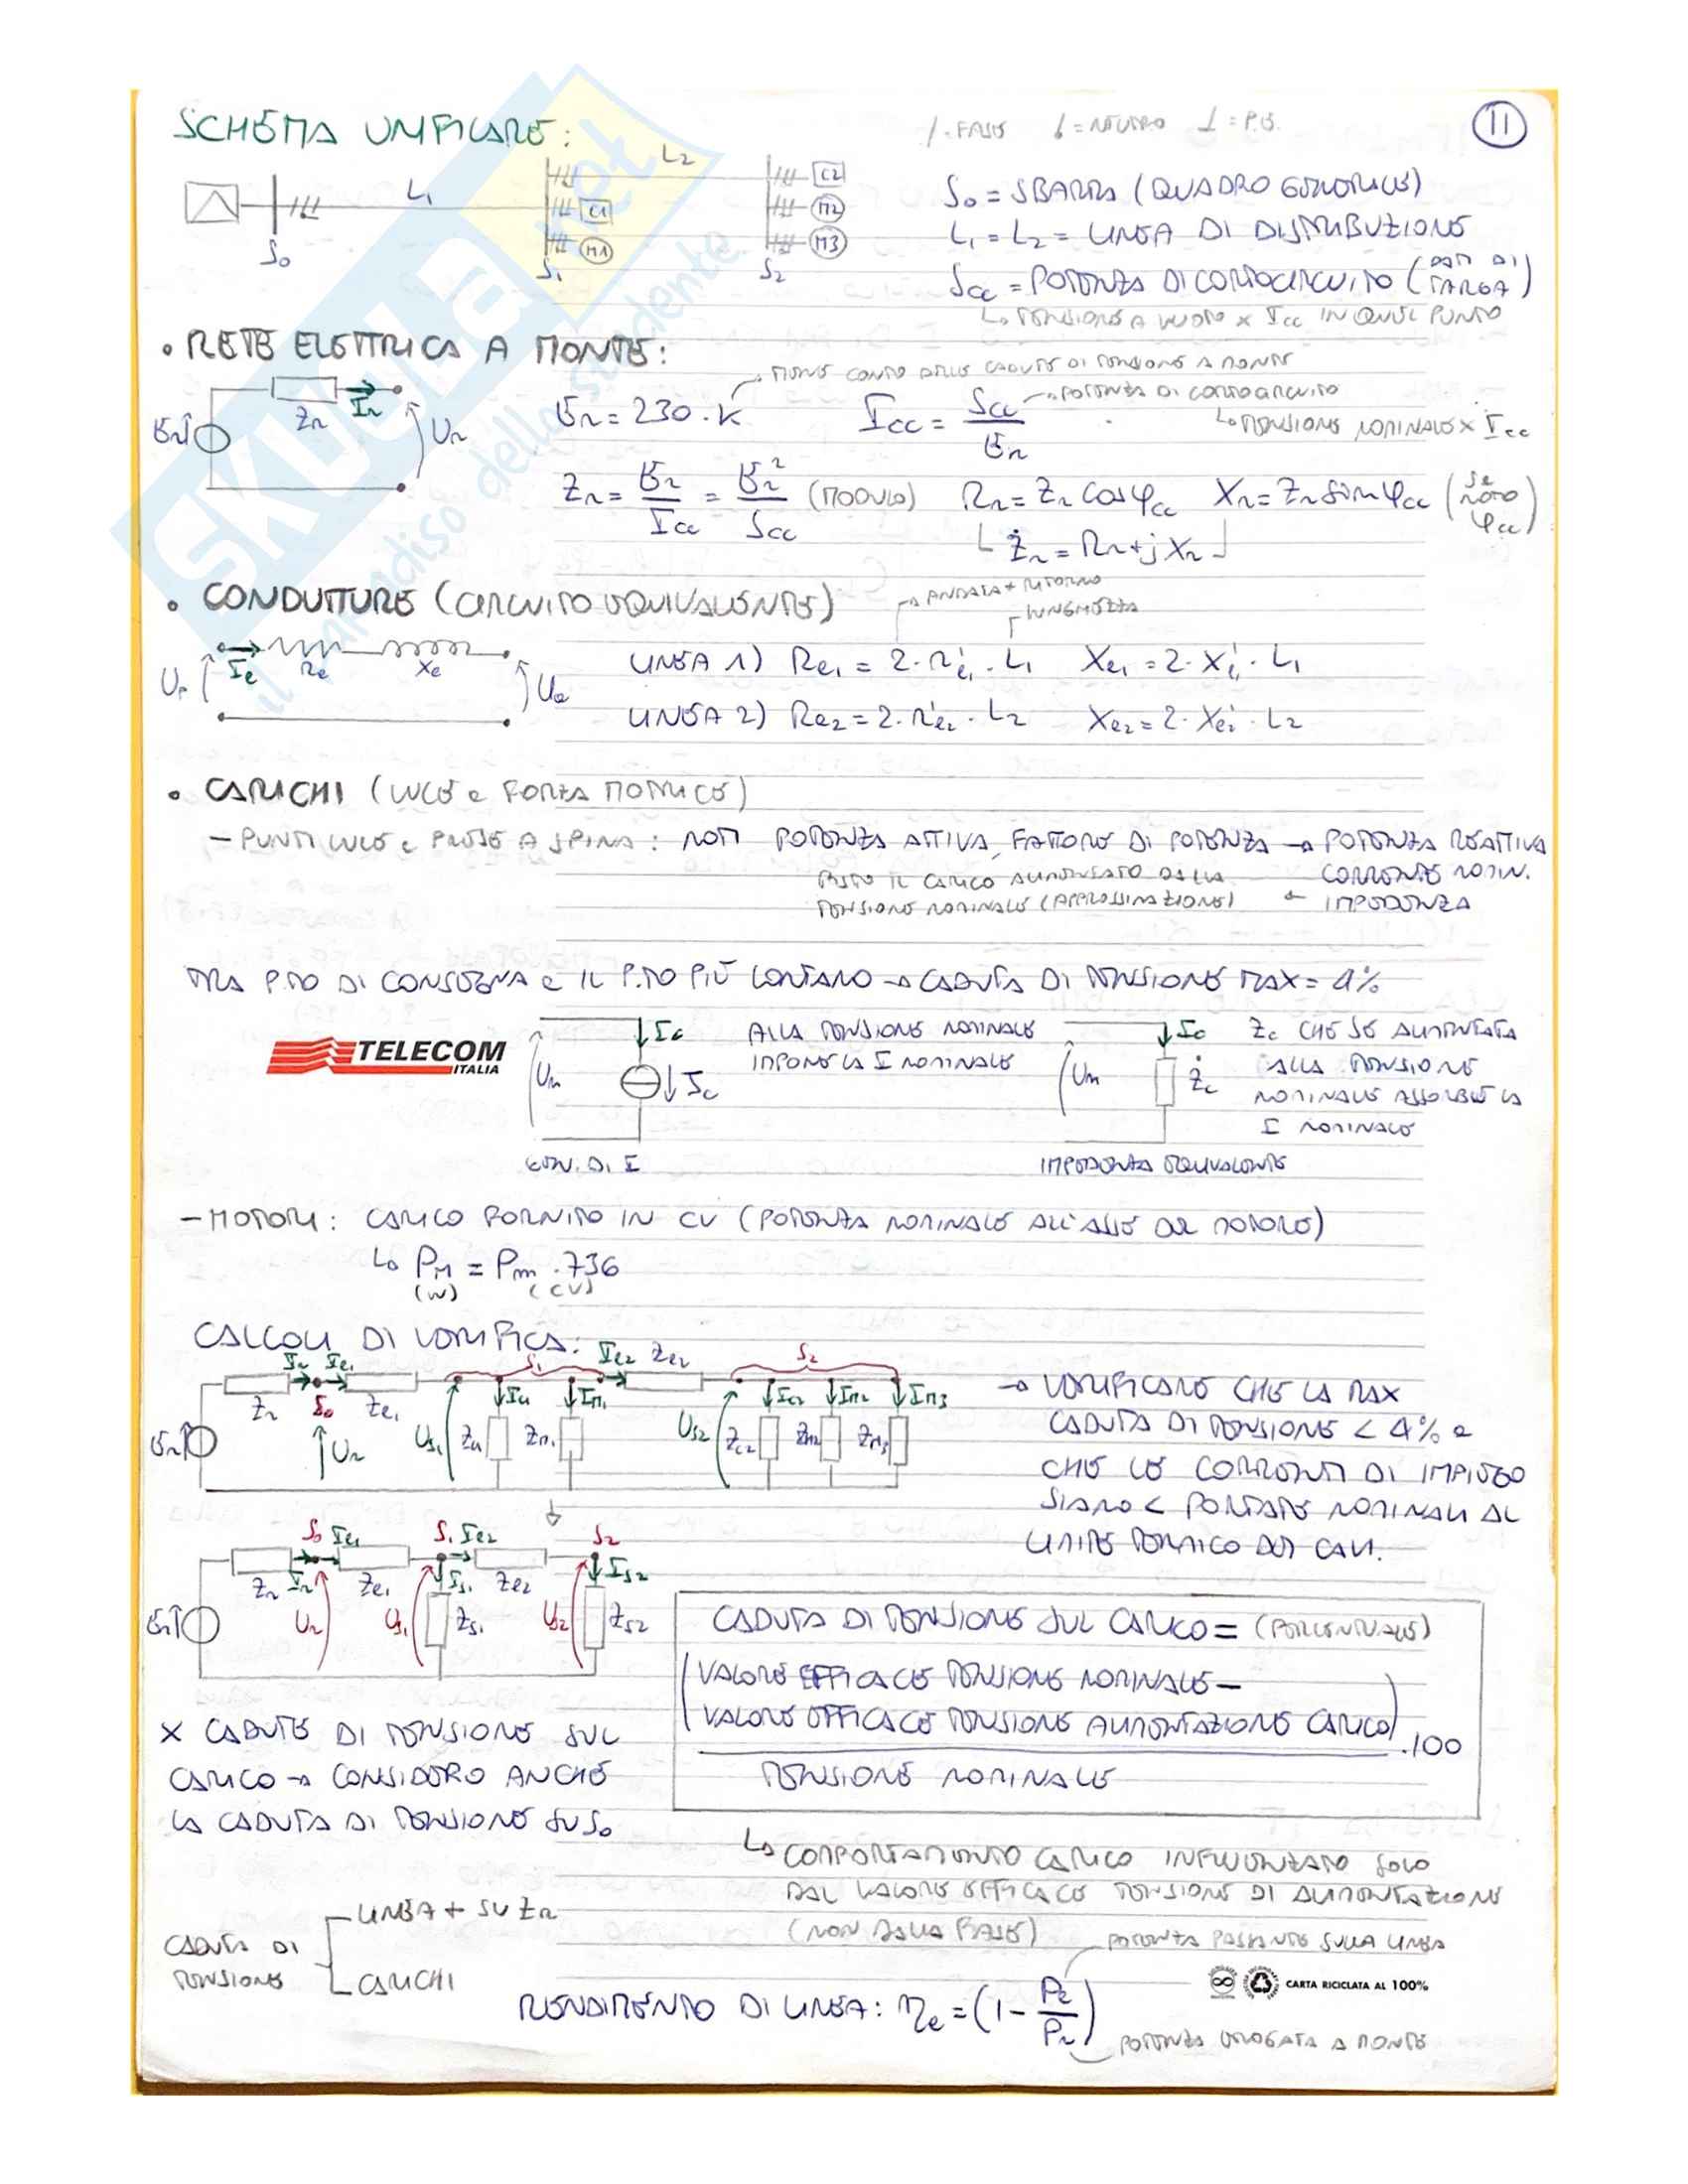 SCHEMA UNIFILARE:
/ = FASE  = NEUTRO ⊥ = P.E.
11
L1
L2
C1
M1
C2
M2
M3
S0
S1
S2
S0 = SBARRA (QUADRO GENERALE)
L1 = L2 = LINEA DI DISTRIBUZIONE
Scc = POTENZA DI CORTOCIRCUITO (DATI DI TARGA)
↳ TENSIONE A VUOTO x Icc IN QUEL PUNTO
• RETE ELETTRICA A MONTE:
→ TIENE CONTO DELLE CADUTE DI TENSIONE A MONTE
Er Zr Ir Ur
Er = 230 · K
Icc = Scc / Er
→ POTENZA DI CORTOCIRCUITO
↳ TENSIONE NOMINALE x Icc
Zr = Er / Icc = Er² / Scc (MODULO) Rr = Zr cosφcc Xr = Zr sinφcc (SE NOTO φcc)
Żr = Rr + j Xr
• CONDUTTURE (CIRCUITO EQUIVALENTE)
→ ANDATA + RITORNO
LUNGHEZZA
Ie Re Xe
LINEA 1) Re1 = 2 · r'e1 · L1 Xe1 = 2 · x'e1 · L1
LINEA 2) Re2 = 2 · r'e2 · L2 Xe2 = 2 · x'e2 · L2
• CARICHI (LUCE e FORZA MOTRICE)
- PUNTI LUCE e PRESE A SPINA: NOTI POTENZA ATTIVA, FATTORE DI POTENZA → POTENZA REATTIVA
CORRENTE NOMIN.
IMPEDENZA
IL CARICO ALIMENTATO DALLA
TENSIONE NOMINALE (APPROSSIMAZIONE) ←
TRA P.TO DI CONSEGNA e IL P.TO PIÙ LONTANO → CADUTA DI TENSIONE MAX = 4%
TELECOM
ITALIA
Un Ic Jc
ALLA TENSIONE NOMINALE
IMPONE LA I NOMINALE
GEN. DI I
Un Ic Żc
Zc CHE SE ALIMENTATA
ALLA TENSIONE
NOMINALE ASSORBE LA
I NOMINALE
IMPEDENZA EQUIVALENTE
- MOTORI: CARICO FORNITO IN CV (POTENZA NOMINALE ALL'ASSE DEL MOTORE)
↳ PM = Pm · 736
(W) (CV)
CALCOLI DI VERIFICA:
Ir Ie1 S1 Ie2 Ze2 S2
Zr S0 Ze1 Ic1 IM1 Ic2 IM2 IM3
Er Ur US1 Zc1 ZM1 US2 Zc2 ZM2 ZM3
→ VERIFICARE CHE LA MAX
CADUTA DI TENSIONE < 4% e
CHE LE CORRENTI DI IMPIEGO
SIANO < PORTATE NOMINALI AL
LIMITE TERMICO DEI CAVI.
S0 Ie1 S1 Ie2 S2
Zr Ir Ze1 IS1 Ze2 IS2
Er Ur US1 ZS1 US2 ZS2
CADUTA DI TENSIONE SUL CARICO = (PERCENTUALE)
(VALORE EFFICACE TENSIONE NOMINALE –
VALORE EFFICACE TENSIONE ALIMENTAZIONE CARICO) · 100
TENSIONE NOMINALE
X CADUTE DI TENSIONE SUL
CARICO → CONSIDERO ANCHE
LA CADUTA DI TENSIONE SU S0
↳ COMPORTAMENTO CARICO INFLUENZATO SOLO
DAL VALORE EFFICACE TENSIONE DI ALIMENTAZIONE
(NON DALLA FASE)
CADUTA DI
TENSIONE
LINEA + SU Zr
CARICHI
POTENZA PASSANTE SULLA LINEA
CARTA RICICLATA AL 100%
RENDIMENTO DI LINEA: ηe = (1 - Pe / Pr)
POTENZA EROGATA A MONTE
SKUOLA.net
il paradiso dello studente